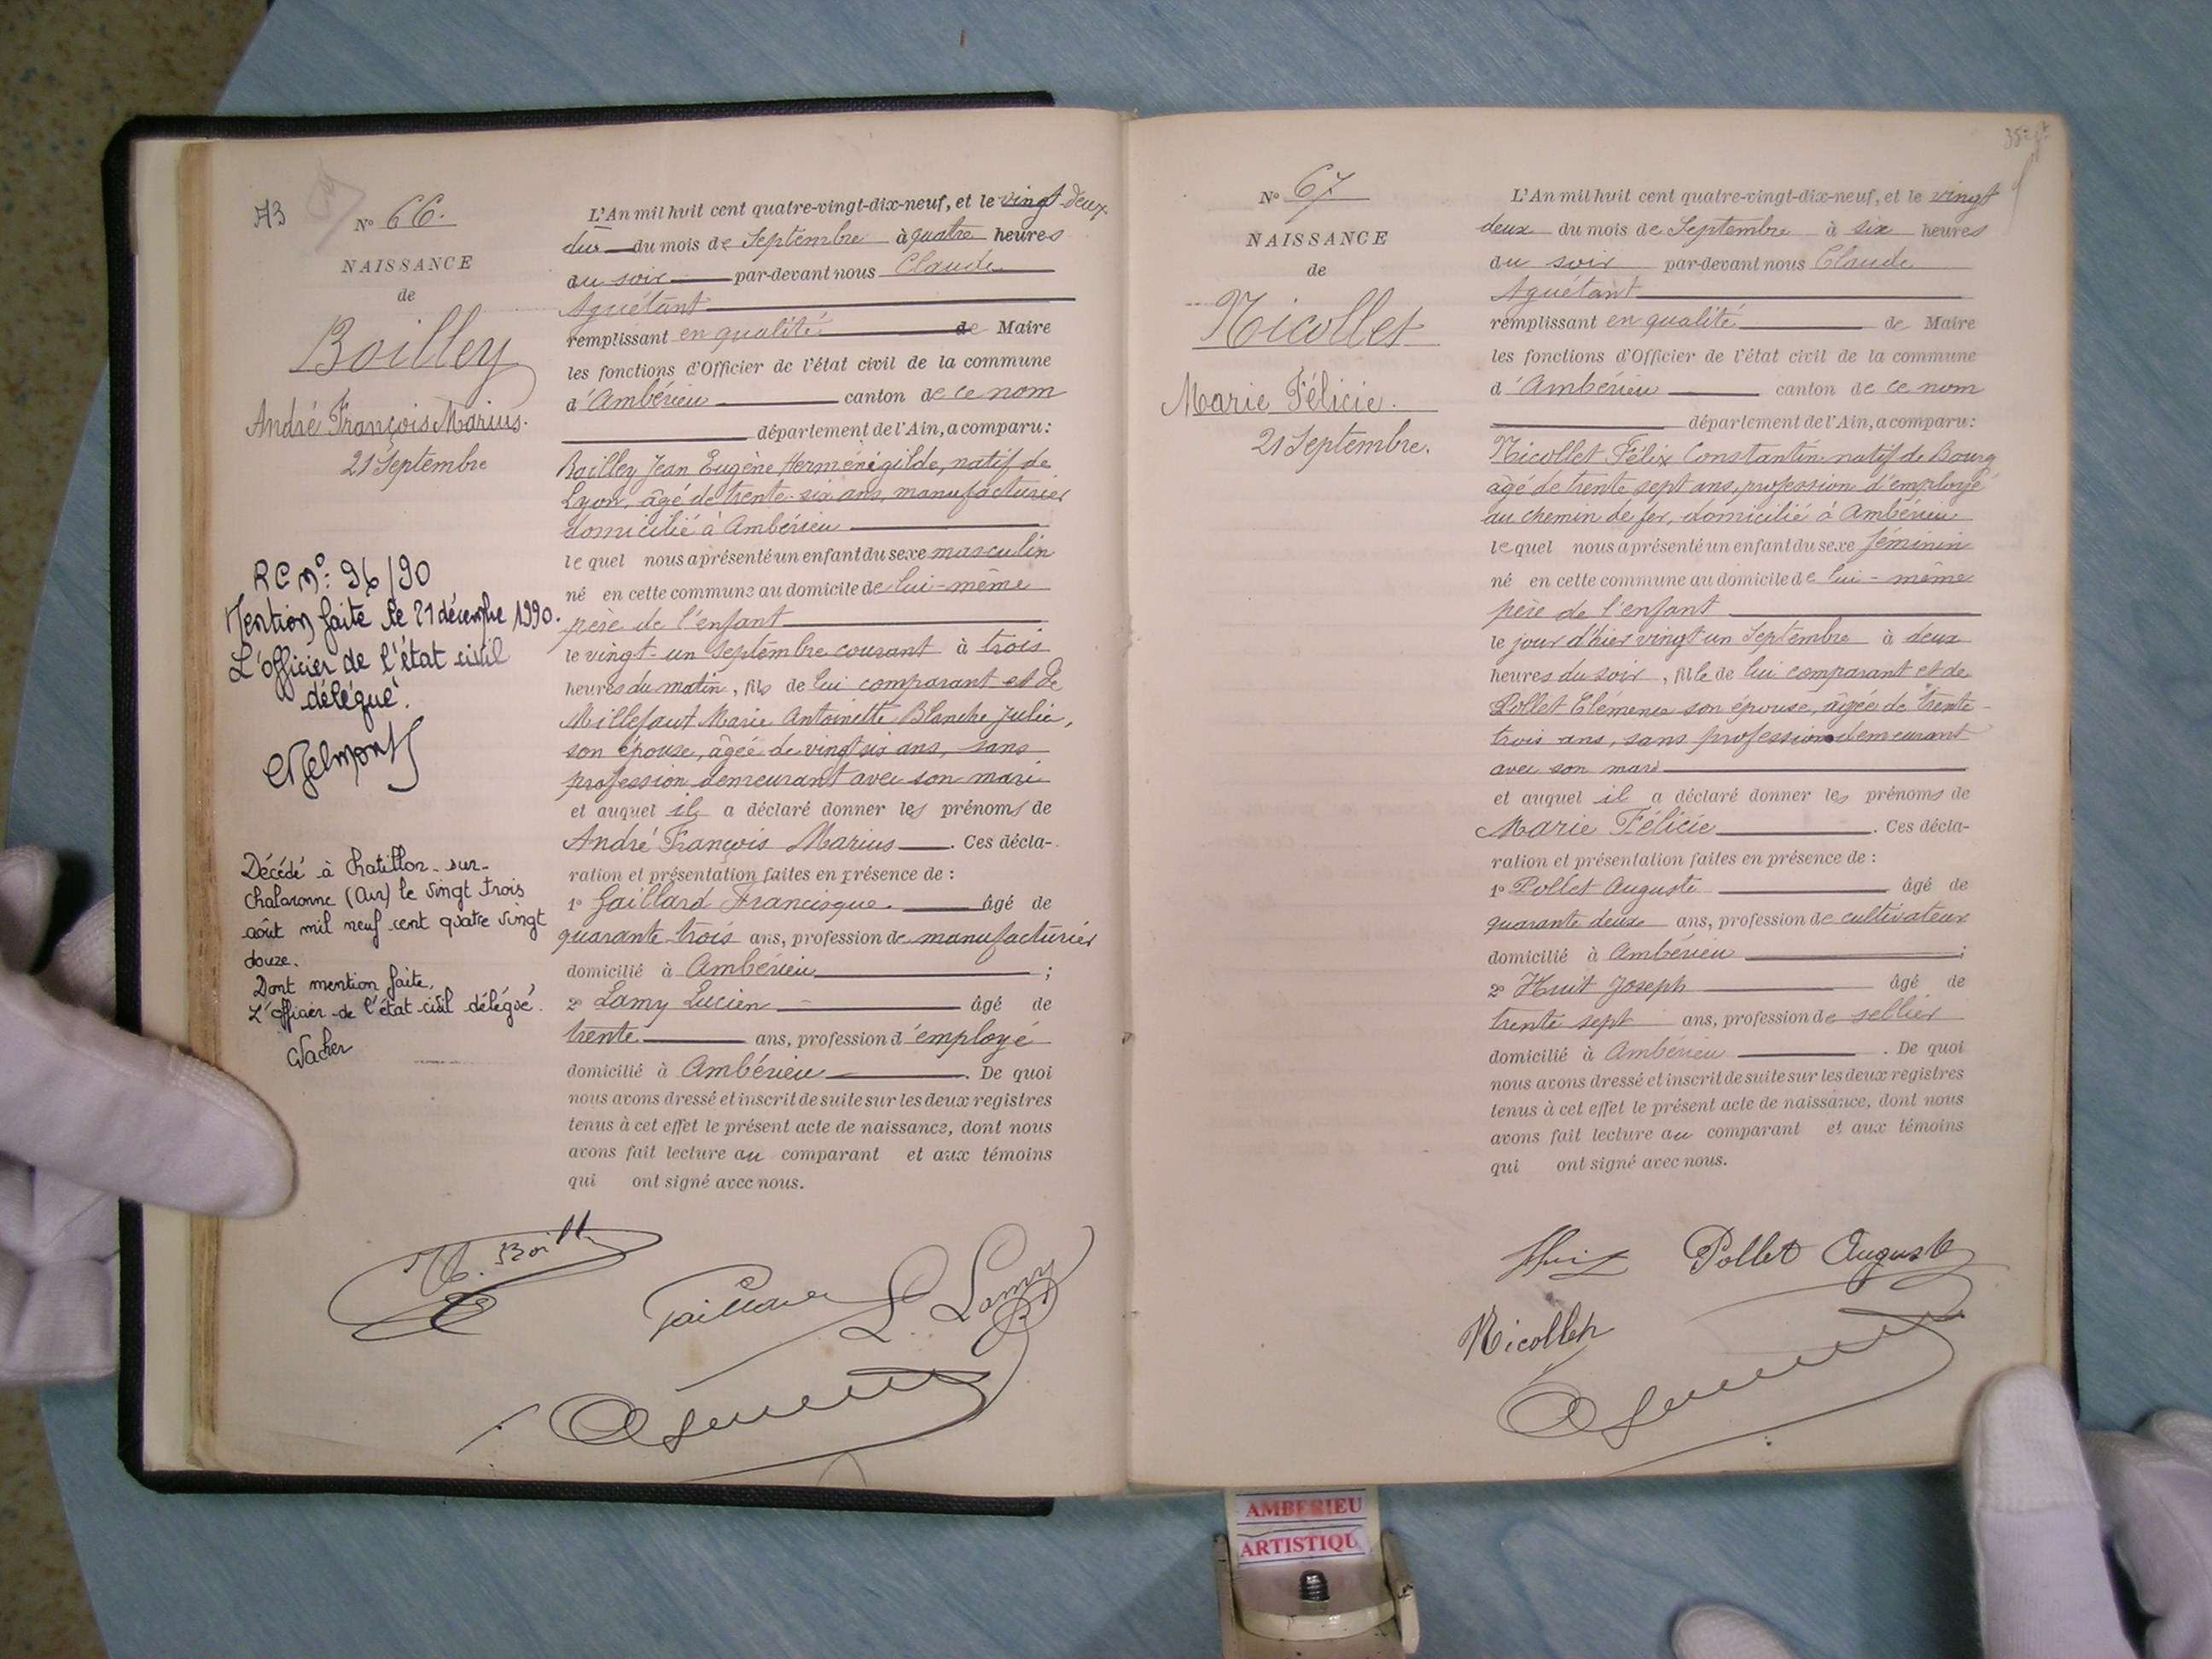 73
N° 66.
NAISSANCE
de
Boilley
André François Marius.
21 Septembre
RC N°: 96/90
Mention faite le 21 décembre 1990.
L'officier de l'état civil
délégué.
Décédé à Chatillon-sur-
Chalaronne (Ain) le vingt trois
août mil neuf cent quatre vingt
douze.
Dont mention faite,
L'officier de l'état civil délégué.
L'An mil huit cent quatre-vingt-dix-neuf, et le vingt-deux
du mois de Septembre à quatre heures
du soir par-devant nous Claude
Aguétant
remplissant en qualité de Maire
les fonctions d'Officier de l'état civil de la commune
d'Ambérieu canton de ce nom
département de l'Ain, a comparu:
Boilley Jean Eugène Herménégilde, natif de
Lyon, âgé de trente-six ans, manufacturier
domicilié à Ambérieu
lequel nous a présenté un enfant du sexe masculin
né en cette commune au domicile de lui-même
père de l'enfant
le vingt-un Septembre courant à trois
heures du matin, fils de lui comparant et de
Millefaut Marie Antoinette Blanche Julie,
son épouse, âgée de vingt six ans, sans
profession demeurant avec son mari
et auquel il a déclaré donner les prénoms de
André François Marius. Ces décla-
ration et présentation faites en présence de :
1° Gaillard Francisque. âgé de
quarante trois ans, profession de manufacturier
domicilié à Ambérieu ;
2° Lamy Lucien âgé de
trente ans, profession d'employé
domicilié à Ambérieu. De quoi
nous avons dressé et inscrit de suite sur les deux registres
tenus à cet effet le présent acte de naissance, dont nous
avons fait lecture au comparant et aux témoins
qui ont signé avec nous.
L. Lamy
N° 67
NAISSANCE
de
Nicollet
Marie Félicie.
21 Septembre.
L'An mil huit cent quatre-vingt-dix-neuf, et le vingt
deux du mois de Septembre à six heures
du soir par-devant nous Claude
Aguétant
remplissant en qualité de Maire
les fonctions d'Officier de l'état civil de la commune
d'Ambérieu canton de ce nom
département de l'Ain, a comparu:
Nicollet Félix Constantin natif de Bourg
âgé de trente sept ans, profession d'employé
au chemin de fer, domicilié à Ambérieu
lequel nous a présenté un enfant du sexe féminin
né en cette commune au domicile de lui-même
père de l'enfant
le jour d'hier vingt un Septembre à deux
heures du soir, fille de lui comparant et de
Pollet Clémence son épouse, âgée de trente-
trois ans, sans profession demeurant
avec son mari
et auquel il a déclaré donner les prénoms de
Marie Félicie. Ces décla-
ration et présentation faites en présence de :
1° Pollet Auguste âgé de
quarante deux ans, profession de cultivateur
domicilié à Ambérieu ;
2° Huit Joseph âgé de
trente sept ans, profession de sellier
domicilié à Ambérieu. De quoi
nous avons dressé et inscrit de suite sur les deux registres
tenus à cet effet le présent acte de naissance, dont nous
avons fait lecture au comparant et aux témoins
qui ont signé avec nous.
Pollet Auguste
Nicollet
AMBERIEU
ARTISTIQU